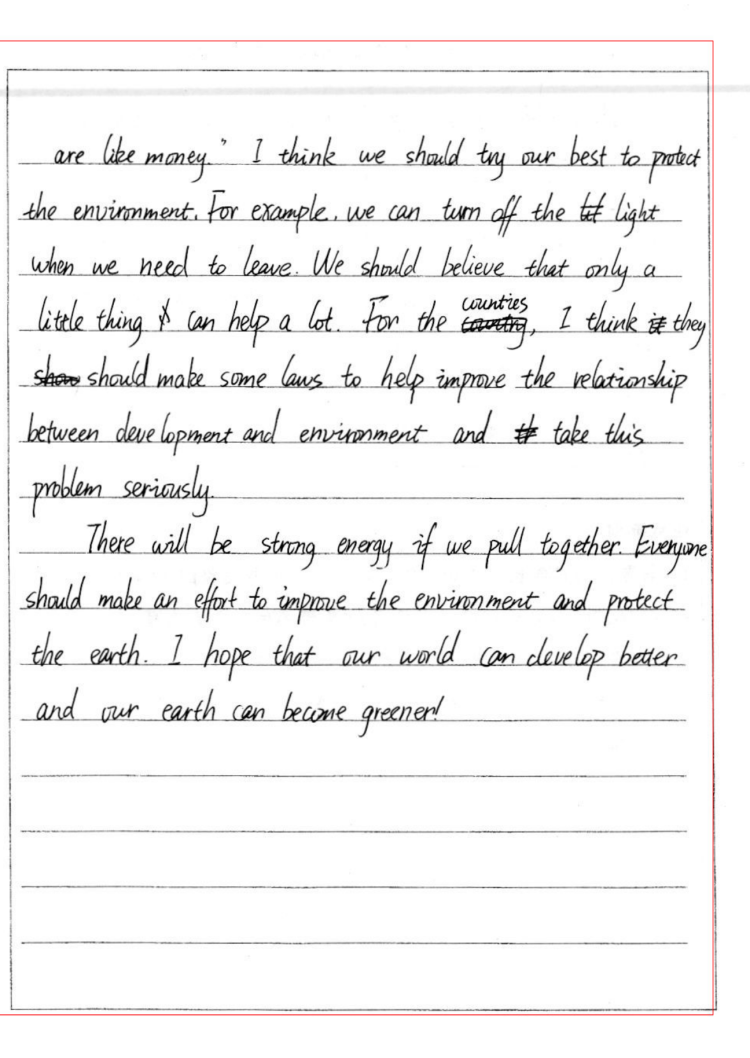 are like money." I think we should try our best to protect
the environment. For example, we can turn off the light
when we need to leave. We should believe that only a
little thing can help a lot. For the counties, I think they
should make some laws to help improve the relationship
between development and environment and take this
problem seriously.
There will be strong energy if we pull together. Everyone
should make an effort to improve the environment and protect
the earth. I hope that our world can develop better
and our earth can become greener!